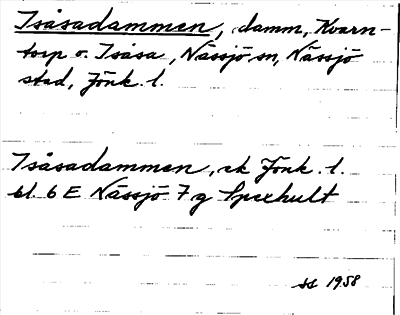 Isåsadammen, damm, Kvarn-
torp o. Isåsa, Nässjö sn, Nässjö
stad, Jönk. l.
Isåsadammen, ek Jönk. l.
bl. 6 E Nässjö 7 g Spexhult
ss 1958